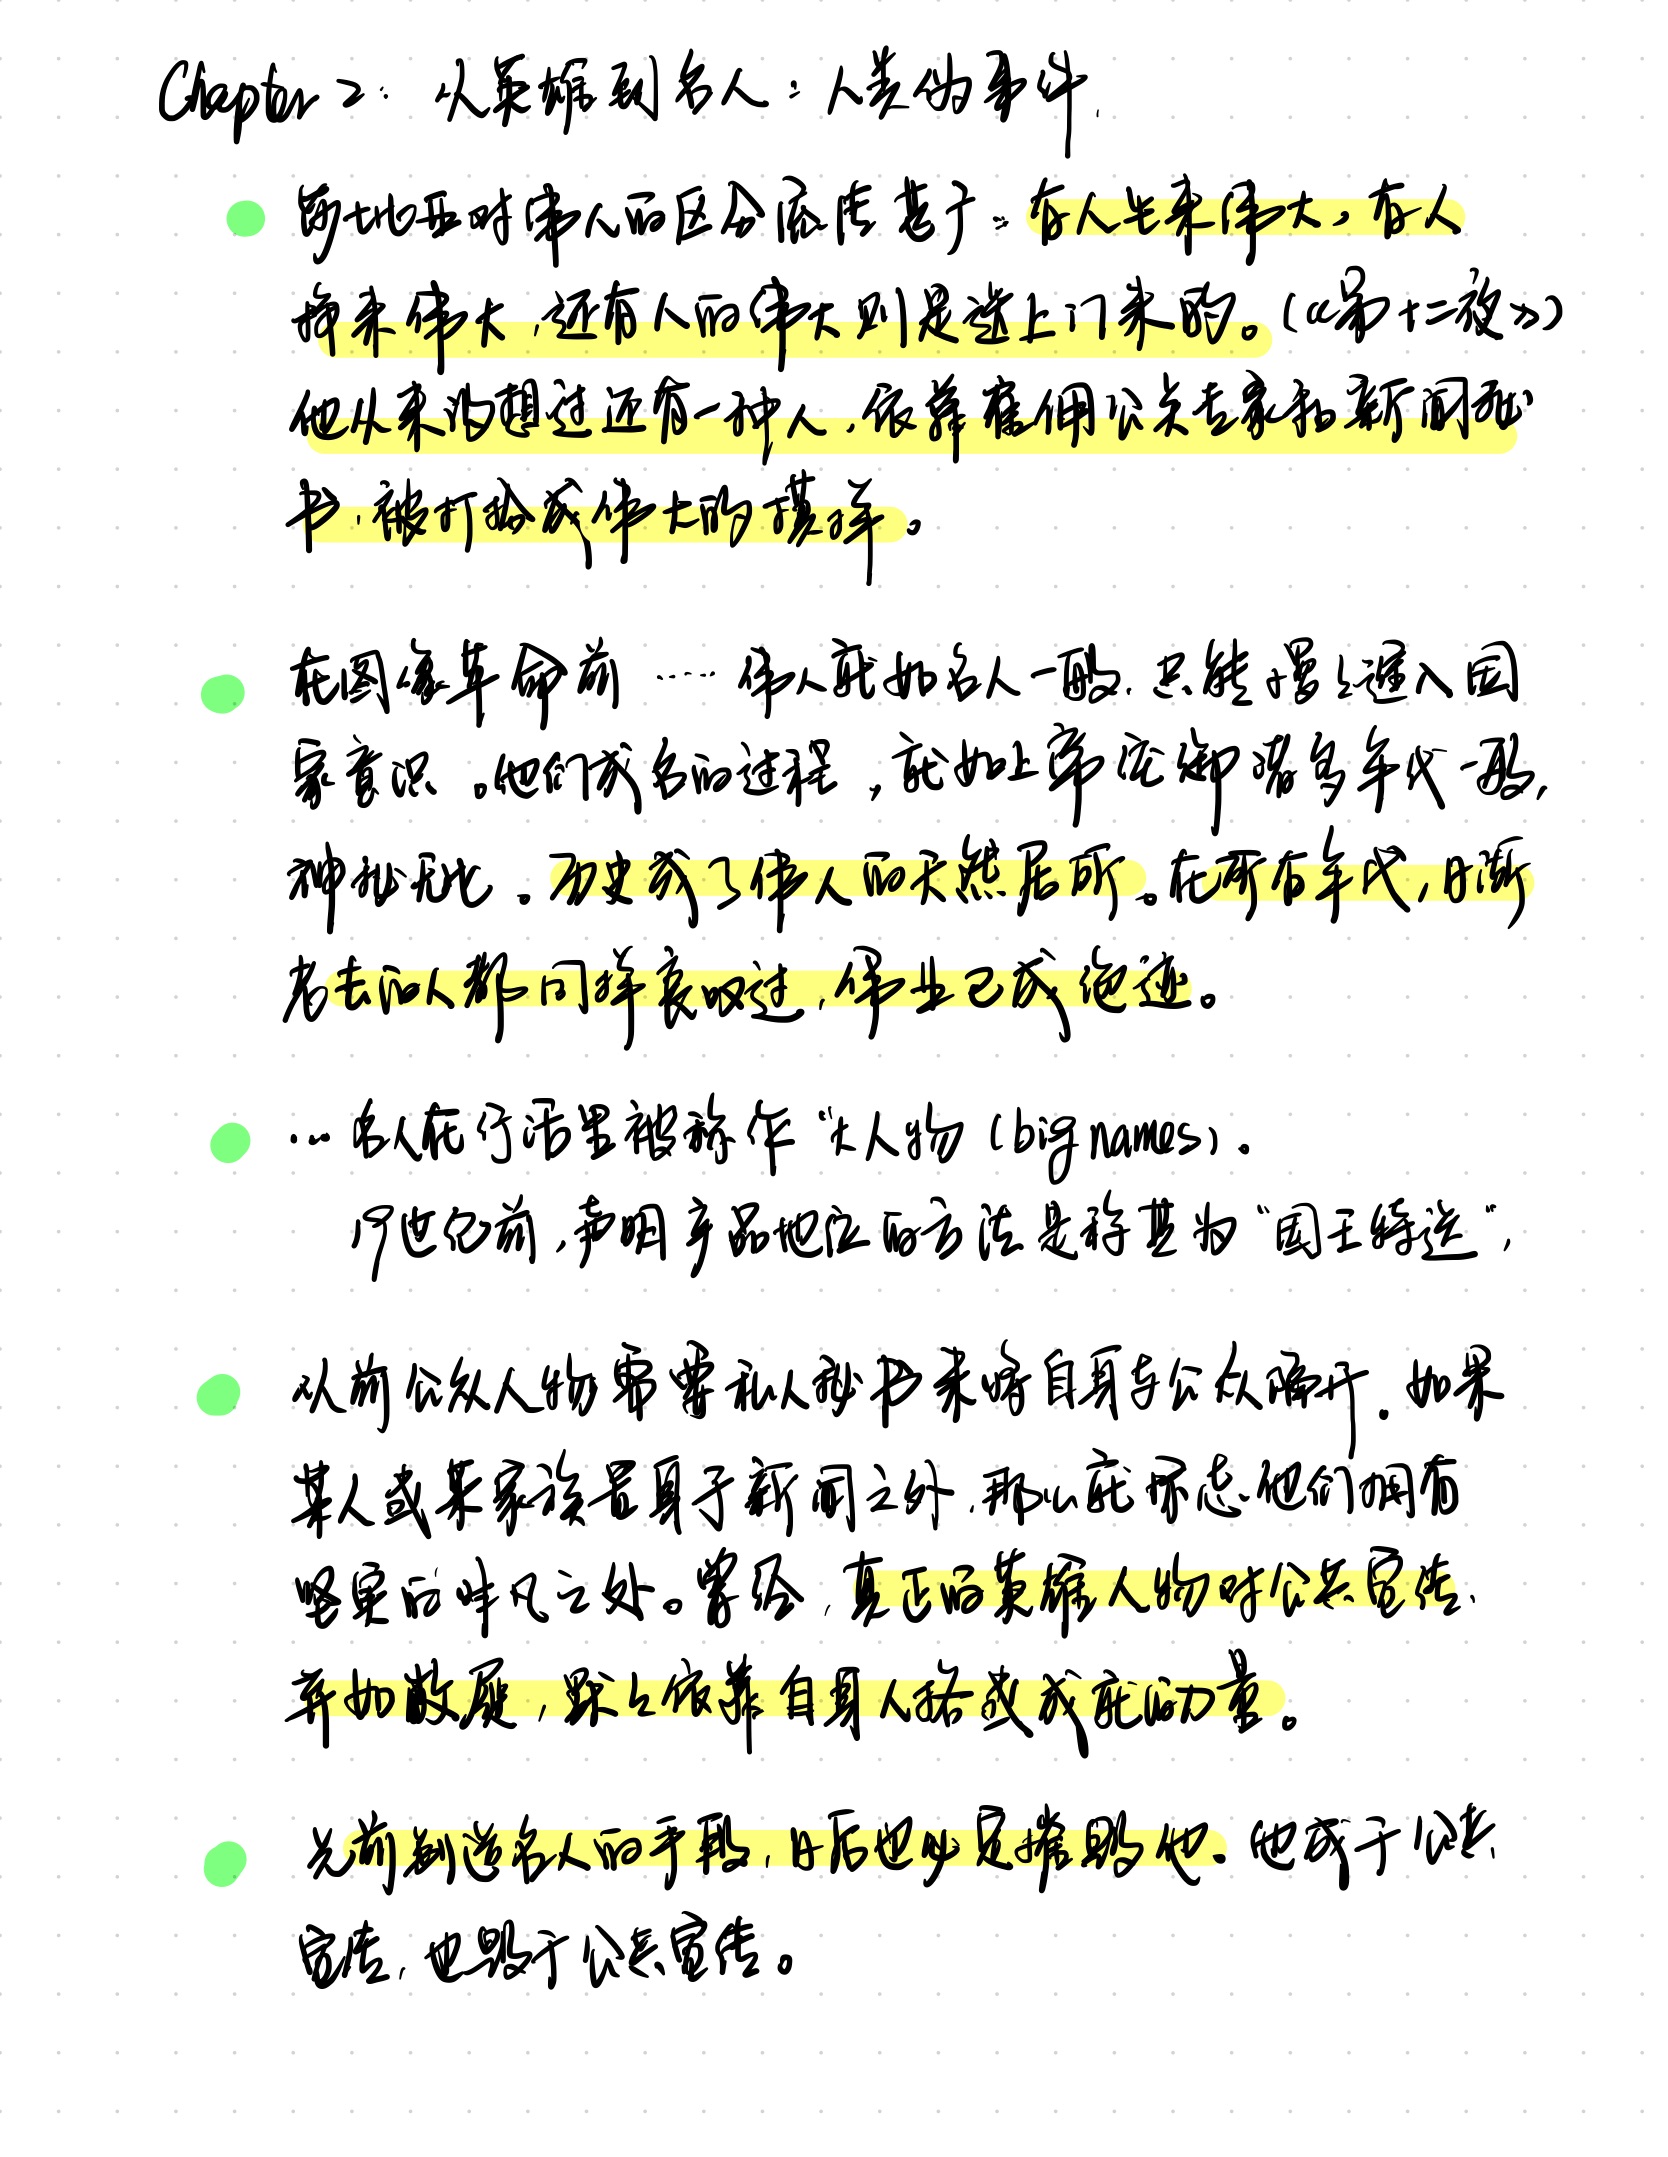 Chapter 2: 从英雄到名人：人类伪事件.
莎士比亚对伟人的区分流传甚于：有人生来伟大，有人
挣来伟大，还有人的伟大则是送上门来的。(《第十二夜》)
他从来没想过还有一种人，依靠雇佣公关专家和新闻秘
书，被打扮成伟大的模样。
在图像革命前 …… 伟人就如名人一般，只能慢慢遁入国
家意识。他们成名的过程，就如上帝统御诸多年代一般，
神秘无比。历史成了伟人的天然居所。在所有年代，日渐
老去的人都同样哀叹过，伟业已成绝迹。
… 名人在行话里被称作“大人物 (big names).
19世纪前，声明产品地位的方法是称其为“国王特选”,
以前公众人物需要私人秘书来将自身与公众隔开. 如果
某人或某家族置身于新闻之外，那么就标志他们拥有
坚实的非凡之处。曾经，真正的英雄人物对公共宣传、
弃如敝屣，默默依靠自身人格或成就的力量。
先前制造名人的手段，日后也必定摧毁他。他成于公共
宣传，也毁于公共宣传。